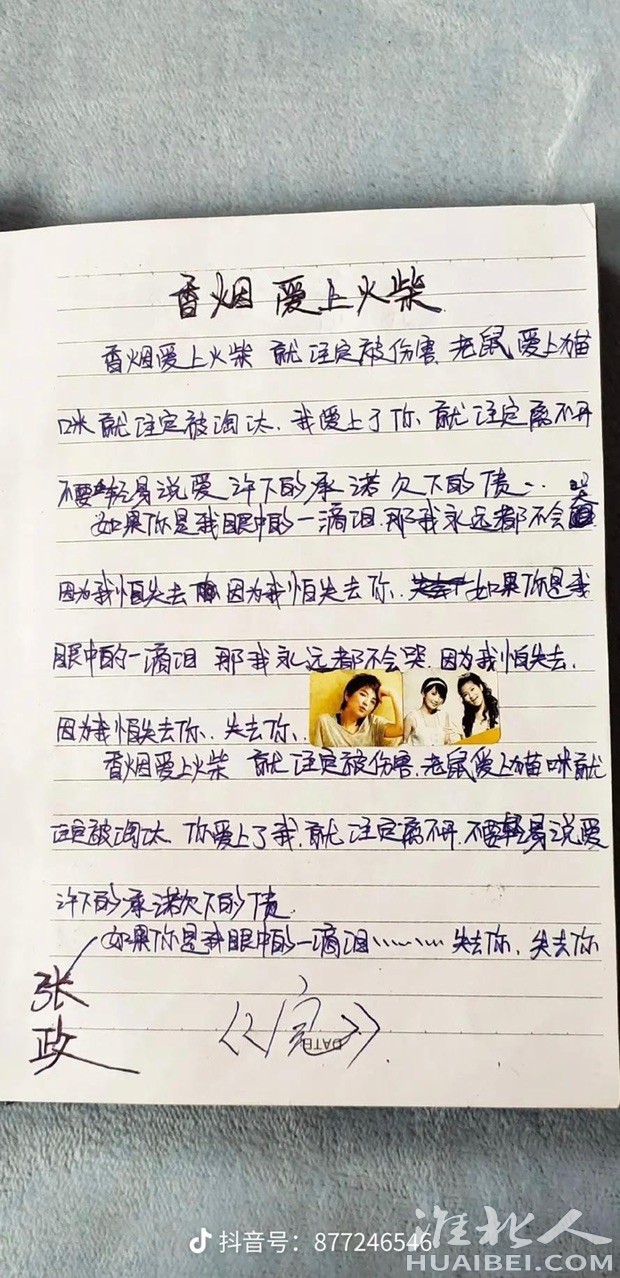 香烟爱上火柴
香烟爱上火柴 就注定被伤害.老鼠爱上猫
咪就注定被淘汰.我爱上了你 就注定离不开
不要轻易说爱 许下的承诺 欠下的债..
如果你是我眼中的一滴泪.那我永远都不会哭
因为我怕失去 因为我怕失去你.如果你是我
眼中的一滴泪 那我永远都不会哭.因为我怕失去.
因为我怕失去你.失去你..
香烟爱上火柴 就注定被伤害.老鼠爱上猫咪就
注定被淘汰.你爱上了我.就注定离不开.不要轻易说爱
许下的承诺欠下的债.
如果你是我眼中的一滴泪………失去你.失去你
张
政
《完》
DATE
抖音号：877246546
淮北人
HUAIBEI.COM